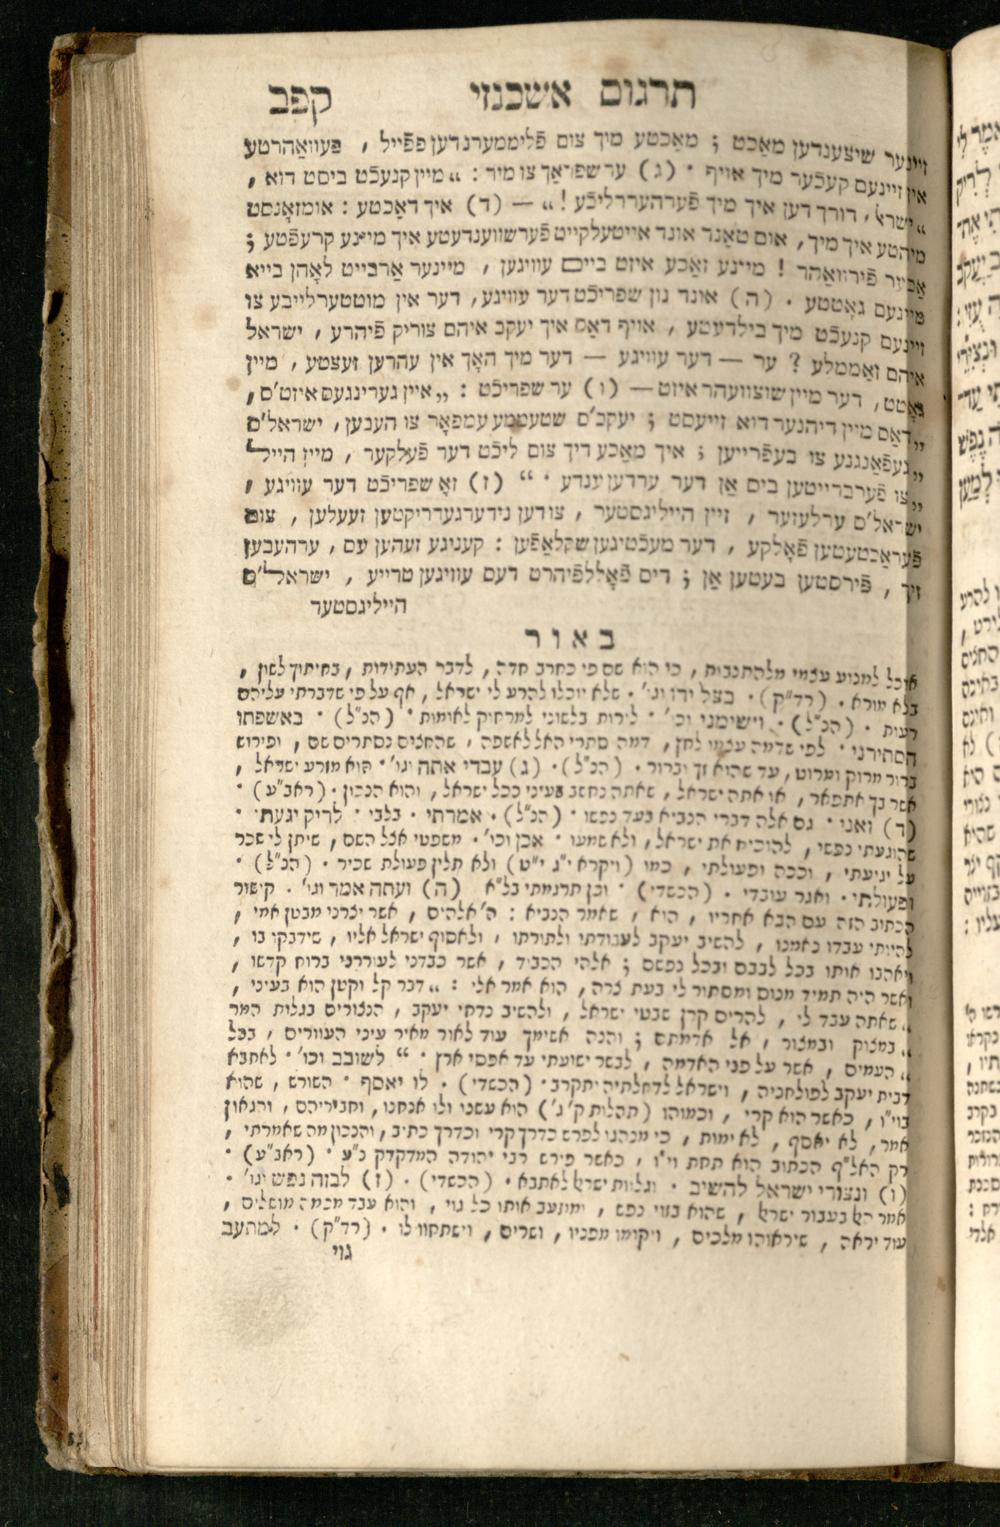 תרגום אשכנזי קפב
זיינער שיצענדען מאַכט ; מאַכטע מיך צום פֿלימערנדען פּפֿייל , בעוואַהרטע
אין זיינעם קעכֿער מיך אויף · (ג) ער שפּראַך צו מיר : „ מיין קנעכֿט ביסט דוא ,
„ ישראל , דורך דען איך מיך פֿערהעררליכֿע ! „ — (ד) איך דאַכטע : אומזאָנסט
מיהטע איך מיך , אום טאַנד אונד אייטעלקייט פֿערשווענדעטע איך מיינע קרעפֿטע ;
אַבער פֿירוואַהר ! מיינע זאַכע איזט ביים עוויגען , מיינער אַרבייט לאָהן בייא
מיינעם גאָטטע · (ה) אונד נון שפּריכֿט דער עוויגע , דער אין מוטטערלייבע צו
זיינעם קנעכֿט מיך בילדעטע , אויף דאַס איך יעקב איהם צוריק פֿיהרע , ישראל
איהם זאַממלע ? ער — דער עוויגע — דער מיך האָך אין עהרען זעצטע , מיין
גאָטט , דער מיין שוצוועהר איזט — (ו) ער שפּריכֿט : „ איין גערינגעס איזט'ס ,
„ דאַס מיין דיהנער דוא זייעסט ; יעקב'ס שטעממע עמפּאָר צו העבען , ישראל'ס
„ געפֿאַנגנע צו בעפֿרייען ; איך מאַכע דיך צום ליכֿט דער פֿעלקער , מיין הייל
„ צו פֿערברייטען ביס אַן דער ערדען ענדע · “ (ז) זאָ שפּריכֿט דער עוויגע ,
ישראל'ס ערלעזער , זיין הייליגסטער , צו דען נידערגעדריקטען זעעלען , צום
פֿעראַבטעטען פֿאָלקע , דער מעכֿטיגען שקלאַפֿען : קעניגע זעהען עס , ערהעבען
זיך , פֿירסטען בעטען אַן ; דיס פֿאָללפֿיהרט דעס עוויגען טרייע , ישראל'ס
הייליגסטער
באור
אוכל למנוע עצמי מלהתנבות , כי הוא שם פי כחרב חדה , לדבר העתידות , בחיתוך לשון ,
בלא מורא · (רד"ק) · בצל ידו וגו' · שלא יוכלו להרע לי ישראל , אף על פי שדברתי עליהם
רעות · (הנ"ל) · וישימני וכו' · לירות בלשוני למרחוק לאומות · (הנ"ל) · באשפתו
הסתירני · לפי שדמה עצמו לחץ , דמה סתרי האל לאשפה , שהחצים נסתרים שם , ופירוש
ברור מרוק ומרוט , עד שהוא זך וברור · (הנ"ל) · (ג) עבדי אתה וגו' · הוא מזרע ישראל ,
אשר בך אתפאר , או אתה ישראל , שאתה נחשב בעיני ככל ישראל , והוא הנכון · (ראב"ע) ·
(ד) ואני · גם אלה דברי הנביא בעד נפשו · (הנ"ל) · אמרתי · בלבי · לריק יגעתי ·
שהוגעתי נפשי , להוכיח את ישראל , ולא שמעו · אכן וכו' · משפטי אצל השם , שיתן לי שכר
על יגיעתי , וככה ופעולתי , כמו (ויקרא י"ג י"ט) ולא תלין פעולת שכיר · (הנ"ל) ·
ופעולתי · ואגר עובדי · (הכשדי) · וכן תרגמתי בל"א (ה) ועתה אמר וגו' · קישור
הכתוב הזה עם הבא אחריו , הוא , שאמר הנביא : ה' אלהים , אשר יצרני מבטן אמי ,
להיותי עבדו נאמנו , להשיב יעקב לעבודתו ולתורתו , ולאסוף ישראל אליו , שידבקו בו ,
ויאהבו אותו בכל לבבם ובכל נפשם ; אלהי הכביד , אשר כבדני לעוררני ברוח קדשו ,
ואשר היה תמיד מנוס ומסתור לי בעת צרה , הוא אמר אלי : „ דבר קל וקטן הוא בעיני ,
„ שאתה עבד לי , להרים קרן שבטי ישראל , ולהשיב נדחי יעקב , הנצורים בגלות המר
„ במצוק ובמצור , אל אדמתם ; והנה אשימך עוד לאור מאיר עיני העוורים , בכל
„ העמים , אשר על פני האדמה , לבשר ישועתי עד אפסי ארץ · “ לשובב וכו' · לאתבא
דבית יעקב לפולחניה , וישראל לדחלתיה יתקרב · (הכשדי) · לו יאסף · השורש , שהוא
בוי"ו , כאשר הוא קרי , וכמוהו (תהלות ק' ג') הוא עשנו ולו אנחנו , וחבריהם , והגאון
אמר , לא יאסף , לא ימות , כי מנהגו לפרש כדרך קרי וכדרך כתיב , והנכון מה שאמרתי ,
רק האל"ף הכתוב הוא תחת וי"ו , כאשר פירש רבי יהודה המדקדק נ"ע · (ראב"ע) ·
(ו) ונצורי ישראל להשיב · וגלוות ישראל לאתבא · (הכשדי) · (ז) לבזה נפש וגו' ·
אמר הש"י בעבור ישראל , שהוא בזוי נפש , ומתעב אותו כל גוי , והוא עבד מכמה מושלים ,
עוד יראה , שיראוהו מלכים , ויקומו מפניו , ושרים , וישתחוו לו · (רד"ק) · למתעב
גוי